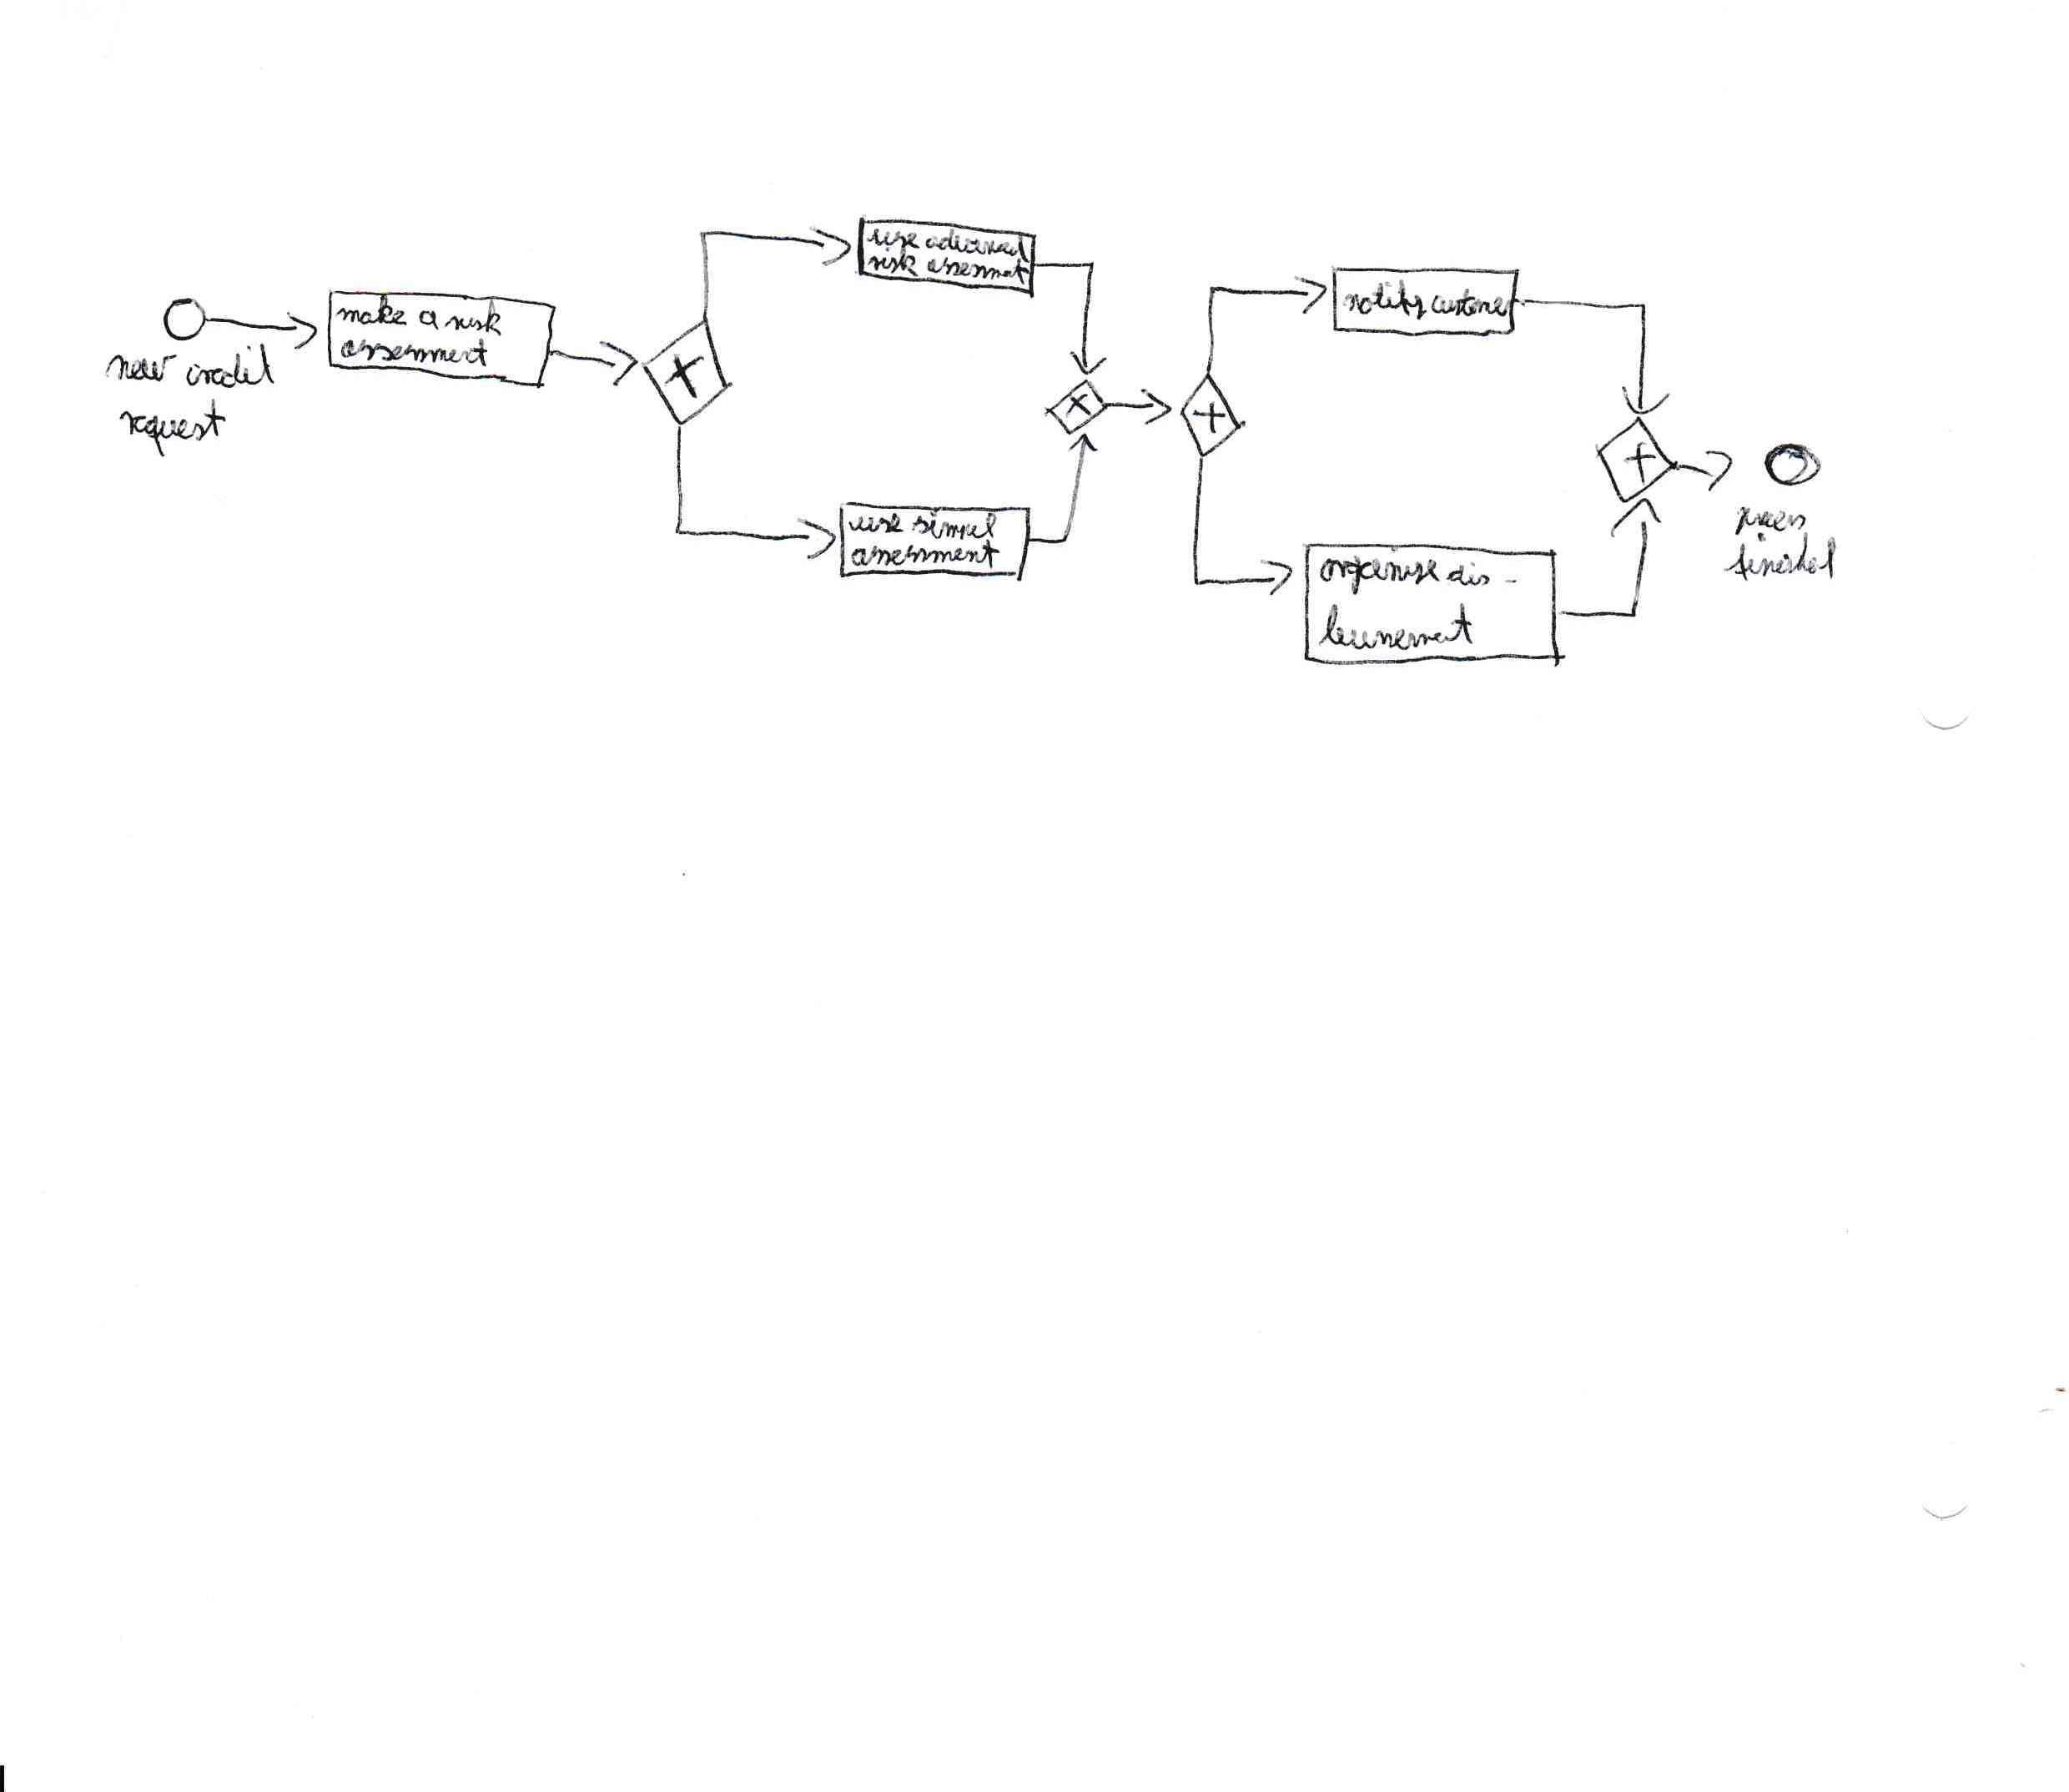 new credit
request
make a risk
assessment
use advanced
risk assessment
use simpel
assessment
notify customer
organise dis-
bursement
process
finished